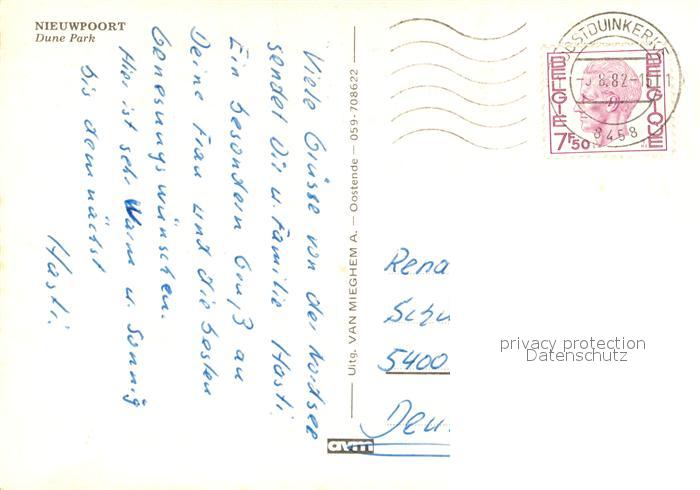 NIEUWPOORT
Dune Park
Viele Grüsse von der Nordsee
sendet Dir u. Familie Hasti.
Ein besondern Gruß an
Deine Frau und die besten
Genesungswünschen.
Hier ist sehr Warm u. Sonnig
bis demnächst
Hasti.
Uitg. VAN MIEGHEM A. — Oostende — 059-708622
avm
OOSTDUINKERKE
8.82-15
8458
BELGIE
BELGIQUE
7F50
Rena
Schu
5400
Deu
privacy protection
Datenschutz